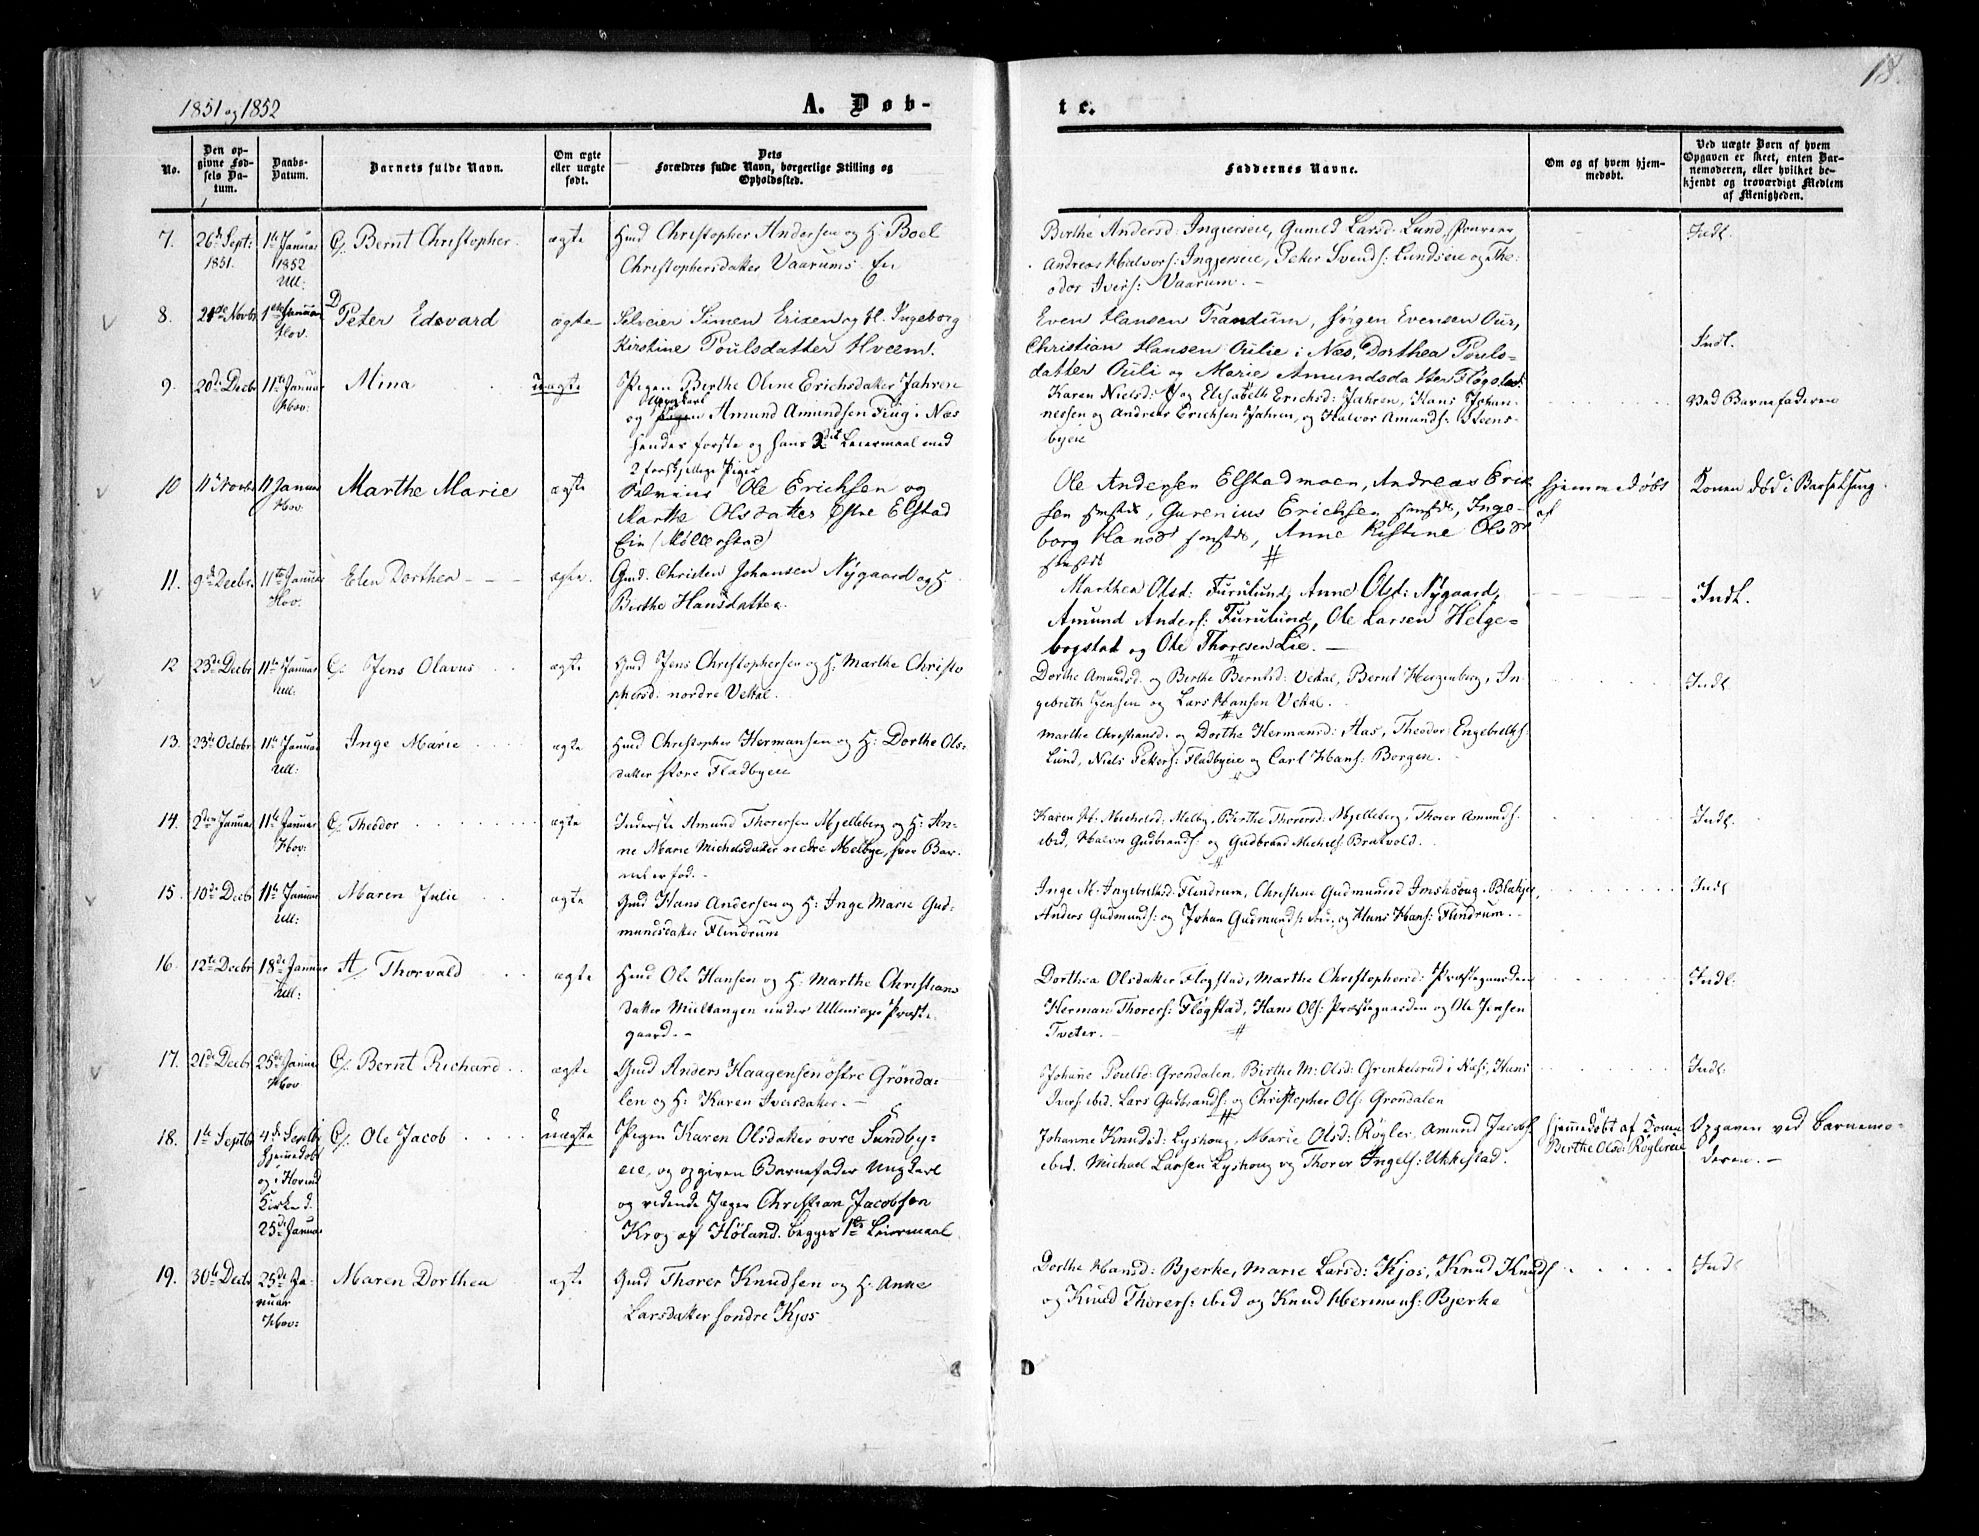 1851 og 1852
A. Døb-
te.
18.
No.
Den op-
givne Fød-
sels Da-
tum.
Daabs-
Datum.
Barnets fulde Navn.
Om ægte
eller uægte
født.
Dets
Forældres fulde Navn, borgerlige Stilling og
Opholdssted.
Faddernes Navne.
Om og af hvem hjem-
medøbt.
Ved uægte Børn af hvem
Opgaven er skeet, enten Bar-
nemoderen, eller hvilket be-
kjendt og troværdigt Medlem
af Menigheden.
7. 26de Sept: 1ste Januar Bernt Christopher. ægte Christopher Andersen og H: Boel
1851. 1852 Christophersdatter Vaarums Eie
Ull:
Birthe Andersd: Ingierseie, Gunild Larsd: Lund,
Andreas Halvors: Ingjerseie, Peter Svends: Lundseie og The-
odor Ivers: Vaarum. –
Indl.
8. 21de Novbr 1ste Januar Peter Edevard ægte Selveier Simen Erixen og H. Ingeborg
Hov. Kirstine Poulsdatter Hveem.
Even Hansen Trandum, Jørgen Evensen Aur,
Christian Hansen Aulie i Næs, Dorthea Pouls-
datter Auli og Marie Amundsdatter Fløgstad.
Indl.
9. 20de Decbr 11te Januar Mina uægte Pigen Birthe Oline Erichsdatter Jahren
Hov: Ungkarl
og Amund Amundsen Fiug i Næs
hendes første og hans 2det Leiermaal med
2 forskjellige Piger
Karen Niels: og Elisabeth Erichsd: Jahren, Hans Johan-
nessen og Andreas Erichsen Jahren, og Halvor Amunds: Steens-
byeie
Ved Barnefaderen
10 11te Novbr 11 Januar Marthe Marie ægte Selveier Ole Erichsen og
Hov. Marthe Olsdatter Østre Elstad
Eie (Møllerstad)
Ole Andersen Elstadmoen, Andreas Erik
sen smstds, Gurenius Erichsen smstds, Inge-
borg Hansd smstds, Anne Kistine Olsd
smstds
hjemmedøbt
af
Konen død i Barselseng.
11. 9de Decbr. 11te Januar Elen Dorthea ægte. Gmd. Christen Johansen Nygaard og H.
Hov. Birthe Hansdatter.
Marthea Olsd: Furulund, Anne Olsd: Nygaard,
Amund Anders: Furulund, Ole Larsen Helge-
bogstad og Ole Thoresen Lie. –
Indl.
12 23de Decbr 11te Januar Jens Olavus ægte Jens Christophersen og H: Marthe Christo
Ull: phersd: nordre Vekal.
Dorthe Amundsd. og Birthe Berntsd: Vekal, Bernt Herzenberg, In-
gebreth Jensen og Lars Hansen Vekal.
Indl.
13. 23de Octobr 11te Januar Inge Marie ægte Christopher Hermansen og H: Dorthe Ols-
Ull: datter store Fladbyeie
Marthe Christiansd. og Dorthe Hermansd: Aas, Theodor Engebreths:
Lund, Niels Peters: Fladbyeie og Carl Hans: Borgen.
14. 2den Januar 11te Januar Theodor ægte Inderste Amund Thorersen Mjelleberg og H: An-
Hov: ne Marie Michelsdatter nedre Melbye, hvor Bar-
net er fød. –
Karen M. Michelsd: Melby, Birthe Thorersd: Mjelleberg, Thorer Amunds:
ibid, Halvor Gudbrands: og Gudbrand Michels: Bratvold.
Indl.
15. 10de Decbr 11te Januar Maren Julie ægte Gmd Hans Andersen og H: Inge Marie Gud-
Ull: mundsdatter Flindrum
Inge M. Ingebretsd: Flindrum, Christine Gudmundsd
Anders Gudmunds: og Johan Gudmunds: og Hans Hans: Flindrum. –
Indl
16. 12te Decbr 18de Januar Thorvald ægte Ole Hansen og H: Marthe Christians
Ull: datter Miltangen under Ullensager Præste-
gaard. –
Dorthea Olsdatter Flogstad, Marthe Christophersd: Præstegaarden
Herman Thorers: Fløgstad, Hans Ols: Præstegaarden og Ole Jensen
Tveter. –
Indl.
17. 21de Decbr 25de Januar Bernt Richard ægte Gmd Anders Haagensen østre Grønda-
Hov len og H: Karen Iversdatter. –
Johane Poulsd: Grøndalen, Birthe M: Olsd: Grinkelsrud i Næs, Hans
Ivers ibid. Lars Gudbrands: og Christopher Ols: Grøndalen
Indl.
18. 1ste Septbr 4de Septbr Ole Jacob uægte Pigen Karen Olsdatter øvre Sundby-
hjemmedøbt eie, og opgiven Barnefader Ungkarl
og i Hovind og ridende Jæger Christian Jacobsen
Kirke d. Krog af Høland. begges 1ste Leiermaal
25de Januar
Johanne Knudsd: Lyshoug, Marie Olsd: Røgler, Amund Jacobs:
ibid. Michael Larsen Lyshoug og Thorer Ingels: Ukkestad.
hjemmedøbt af Konen
Birthe Olsd: Røglereie
Opgaven ved Barnemo-
deren. –
19. 30te Decbr 25de Ja- Maren Dorthea ægte Gmd Thorer Knudsen og H: Anne
nuar Larsdatter søndre Kjos
Hov:
Dorthe Hansd: Bjerke, Marie Larsd: Kjos, Knud Knuds:
og Knud Thorers: ibid og Knud Hermans: Bjerke
Indl
D